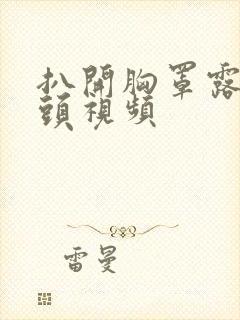 扒開胸罩露
頭視頻
雷曼